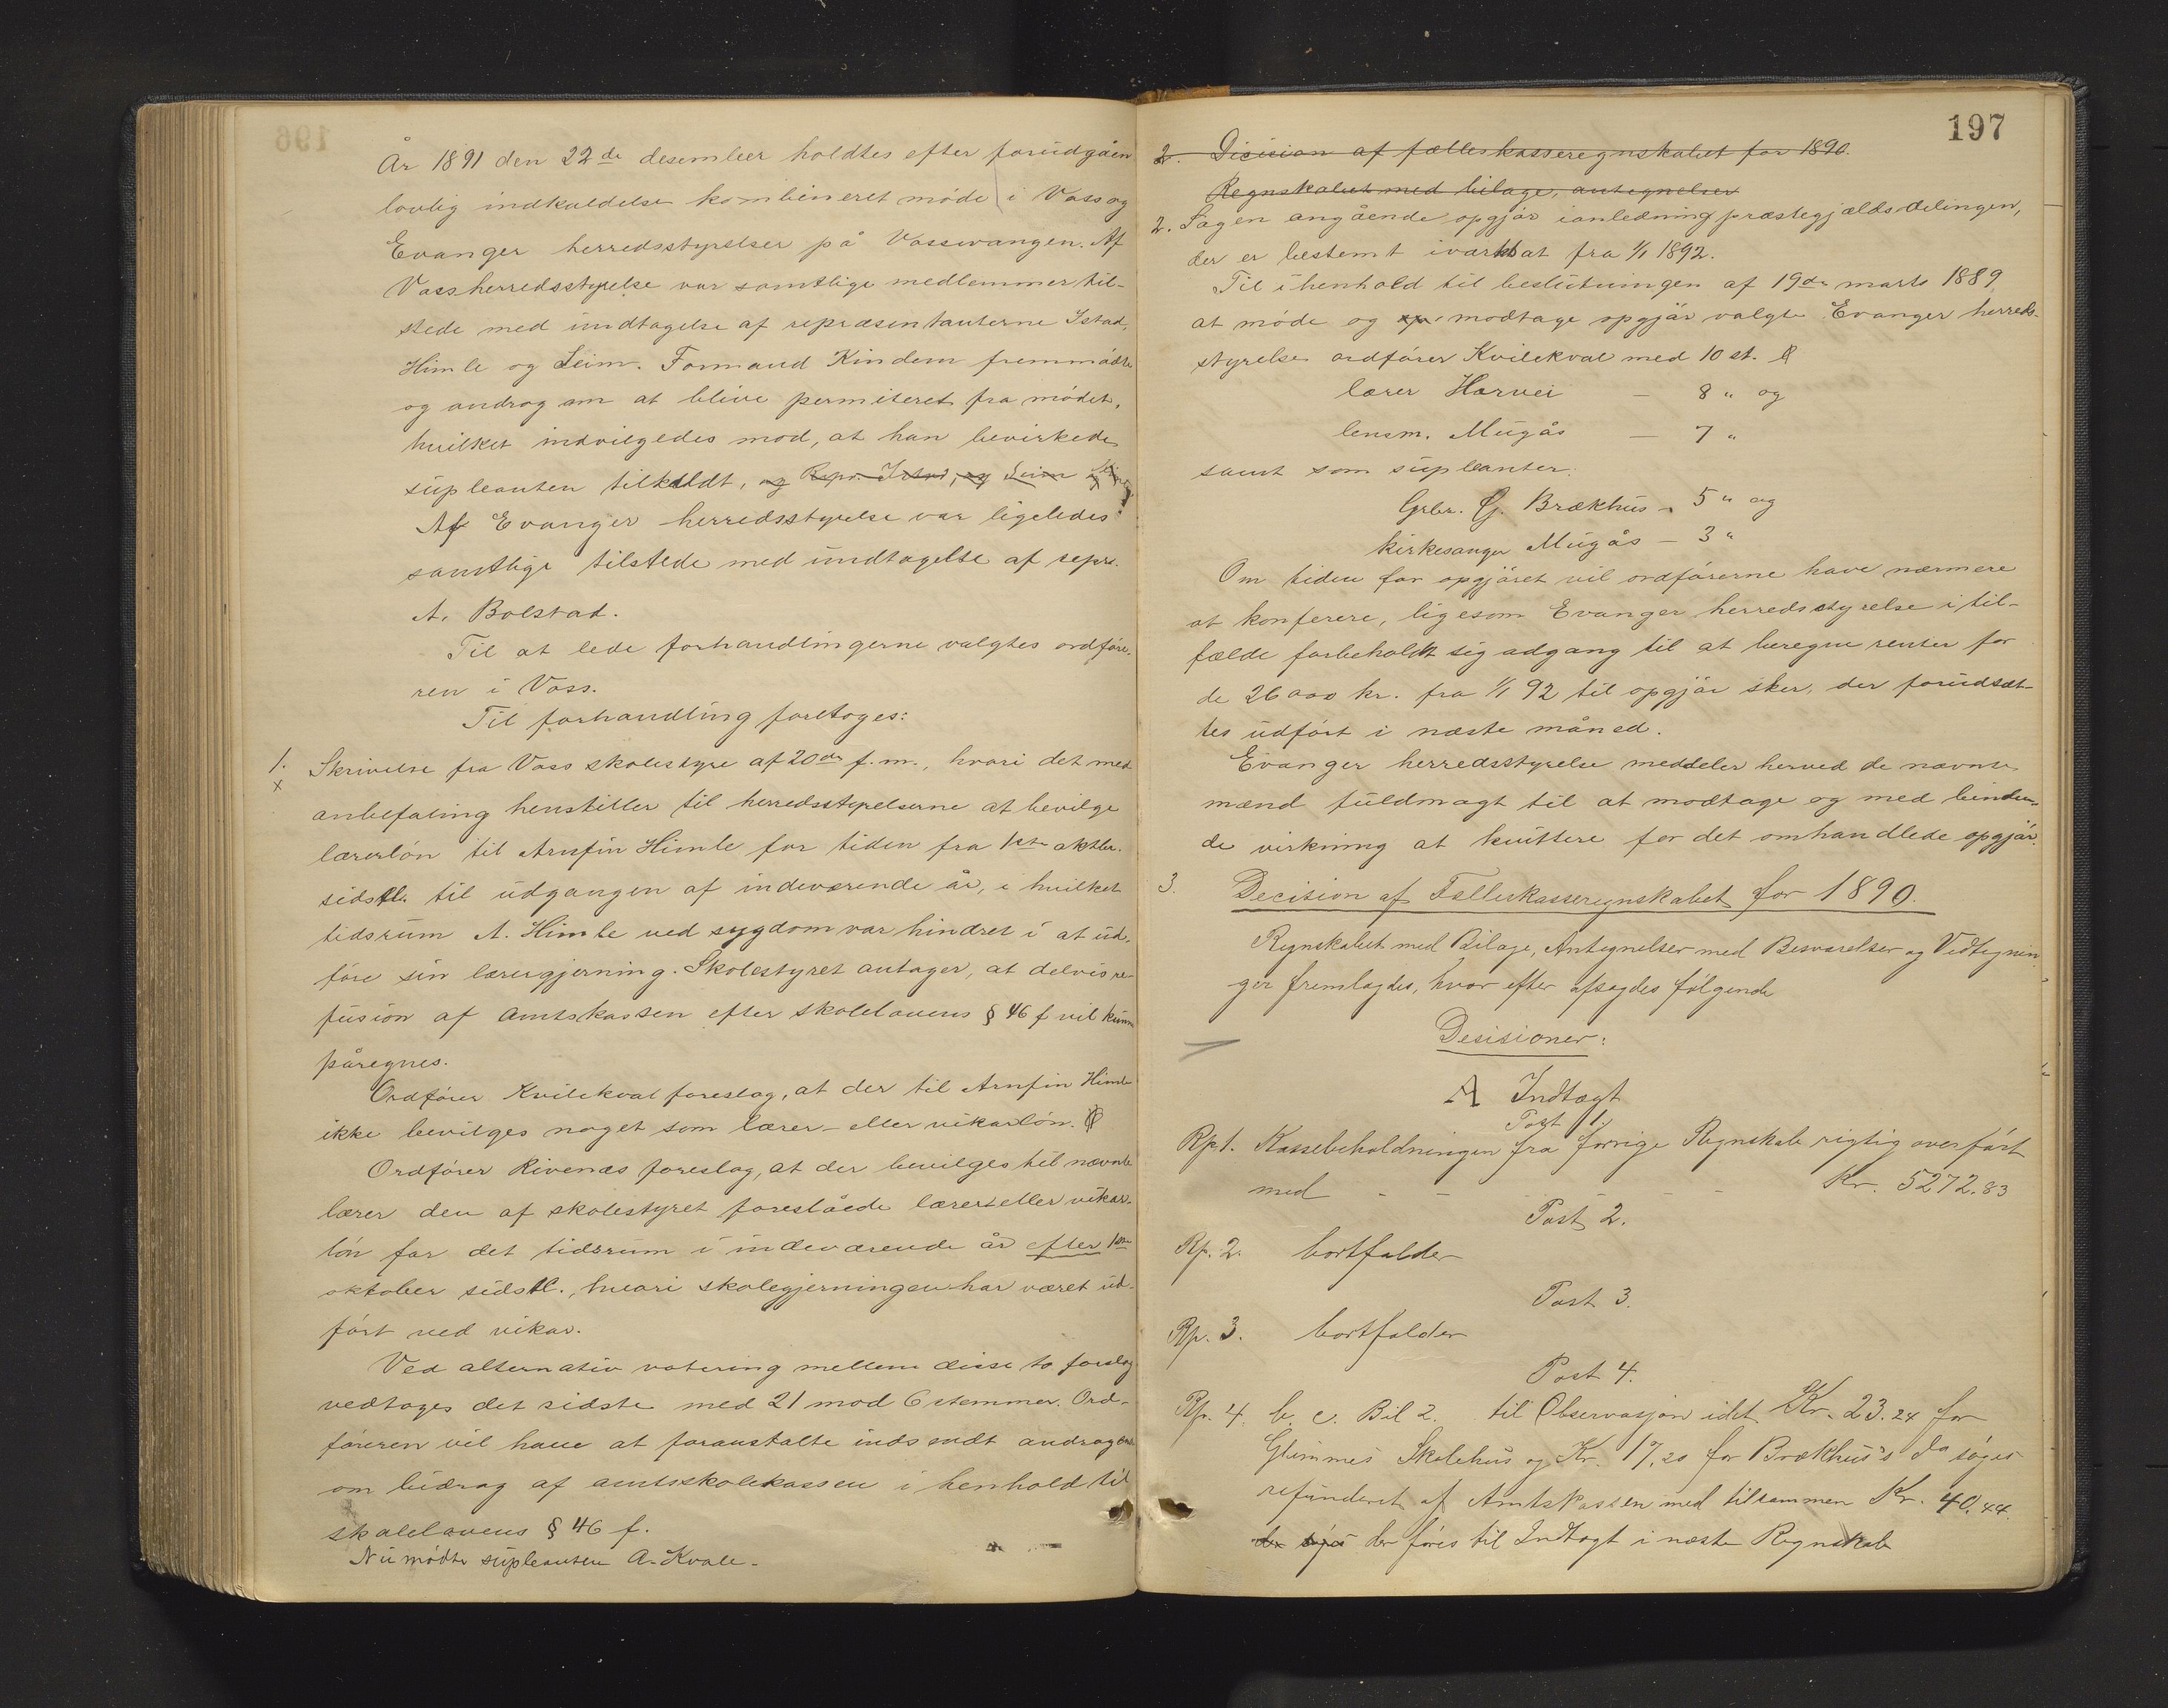 År 1891 den 22de desember holdtes efter forudgåen
lovlig indkaldelse kombineret møde i Voss og
Evanger herredsstyrelser på Vossevangen. Af
Voss herredsstyrelse var samtlige medlemmer til-
stede med undtagelse af repræsentanterne Istad,
Himle og Leim. Formand Kindem fremmødte
og androg om at blive permiteret fra mødet,
hvilket indvilgedes mod, at han bevirkede
supleanten tilkaldt, og Repr. Istad, og Leim
Af Evanger herredsstyrelse var ligeledes
samtlige tilstede med undtagelse af repr.
A. Bolstad.
Til at lede forhandlingerne valgtes ordføre-
ren i Voss.
Til forhandling foretoges:
1. Skrivelse fra Voss skolestyre af 20de f. m., hvori det med
x
anbefaling henstiller til herredsstyrelserne at bevilge
lærerløn til Arnfin Himle for tiden fra 1ste oktbr.
sidstl. til udgangen af indeværende år, i hvilket
tidsrum A. Himle ved sygdom var hindret i at ud-
føre sin lærergjerning. Skolestyret antager, at delvis re-
fusion af Amtskassen efter skolelovens § 46 f vil kunne
påregnes.
Ordfører Kvilekval foreslog, at der til Arnfin Himle
ikke bevilges noget som lærer- eller vikarløn.
Ordfører Rivenæs foreslog, at der bevilges til nævnte
lærer den af skolestyret foreslåede lærer eller vikar-
løn for det tidsrum i indeværende år efter 1ste
oktober sidstl., hvori skolegjerningen har været ud-
ført ved vikar.
Ved alternativ votering mellem disse to forslag
vedtoges det sidste med 21 mod 6 stemmer. Ord-
føreren vil have at foranstalte indsendt andragende
om bidrag af amtsskolekassen i henhold til
skolelovens § 46 f.
Nu mødte supleanten A. Kvale.
197
2. Dicision af fælleskasseregnskabet for 1890.
Regnskabet med bilage, antegnelser
2. Sagen angående opgjør i anledning præstegjældsdelingen,
der er bestemt iværksat fra 1/1 1892.
Til i henhold til beslutningen af 19de marts 1889
at møde og modtage opgjør valgte Evanger herreds-
styrelse ordfører Kvilekval med 10 st.
lærer Horvei — 8 " og
lensm. Mugås — 7 "
samt som supleanter:
Grbr. G. Brækhus — 5 " og
kirkesanger Mugås — 3 "
Om tiden for opgjøret vil ordførerne have nærmere
at konferere, ligesom Evanger herredsstyrelse i til-
fælde forbeholdt sig adgang til at beregne renter for
de 26000 kr. fra 1/1 92 til opgjør sker, der forudsæt-
tes udført i næste måned.
Evanger herredsstyrelse meddeler herved de nævnte
mænd fuldmagt til at modtage og med binden-
de virkning at kvittere for det omhandlede opgjør.
3. Decision af Felleskasseregnskabet for 1890.
Regnskabet med Bilage, Antegnelser med Besvarelser og Vedtegnin
ger fremlagdes, hvor efter afsagdes følgende
Desisioner:
A Indtægt
Post 1.
Rp 1. Kassebeholdningen fra forrige Regnskab rigtig overført
med - - - - - Kr. 5272.83
Post 2.
Rp. 2. bortfalder
Post 3.
Rp. 3. bortfalder
Post 4.
Rp. 4. b. c. Bil 2. til Observasjon idet Kr. 23.24 for
Glimmes Skolehus og Kr. 17.20 for Brækhus's do søges
refunderet af Amtskassen med tilsammen Kr. 40.44.
der søges der føres til Indtægt i næste Regnskab